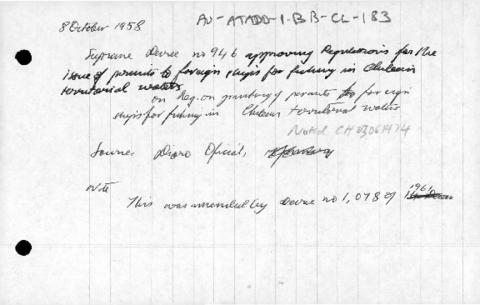 8 October 1958
AU-ATADD-1-BB-CL-183
Supreme Decree no 946 approving Regulations for the
issue of permits to foreign ships for fishing in Chilean
territorial waters
on Reg. on granting of permits to foreign
ships for fishing in Chilean territorial waters
Source: Diario Oficial,
Note
This was amended by Decree no 1,078 of 1961